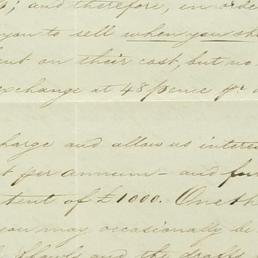 ; and therefore, in orde
you to sell when you sh
ent on their cost, but no
exchange at 48/pence pr
harge and allow us interes
t per annum - and fur
tent of £1000. One th
you may occasionally be
and the drafts